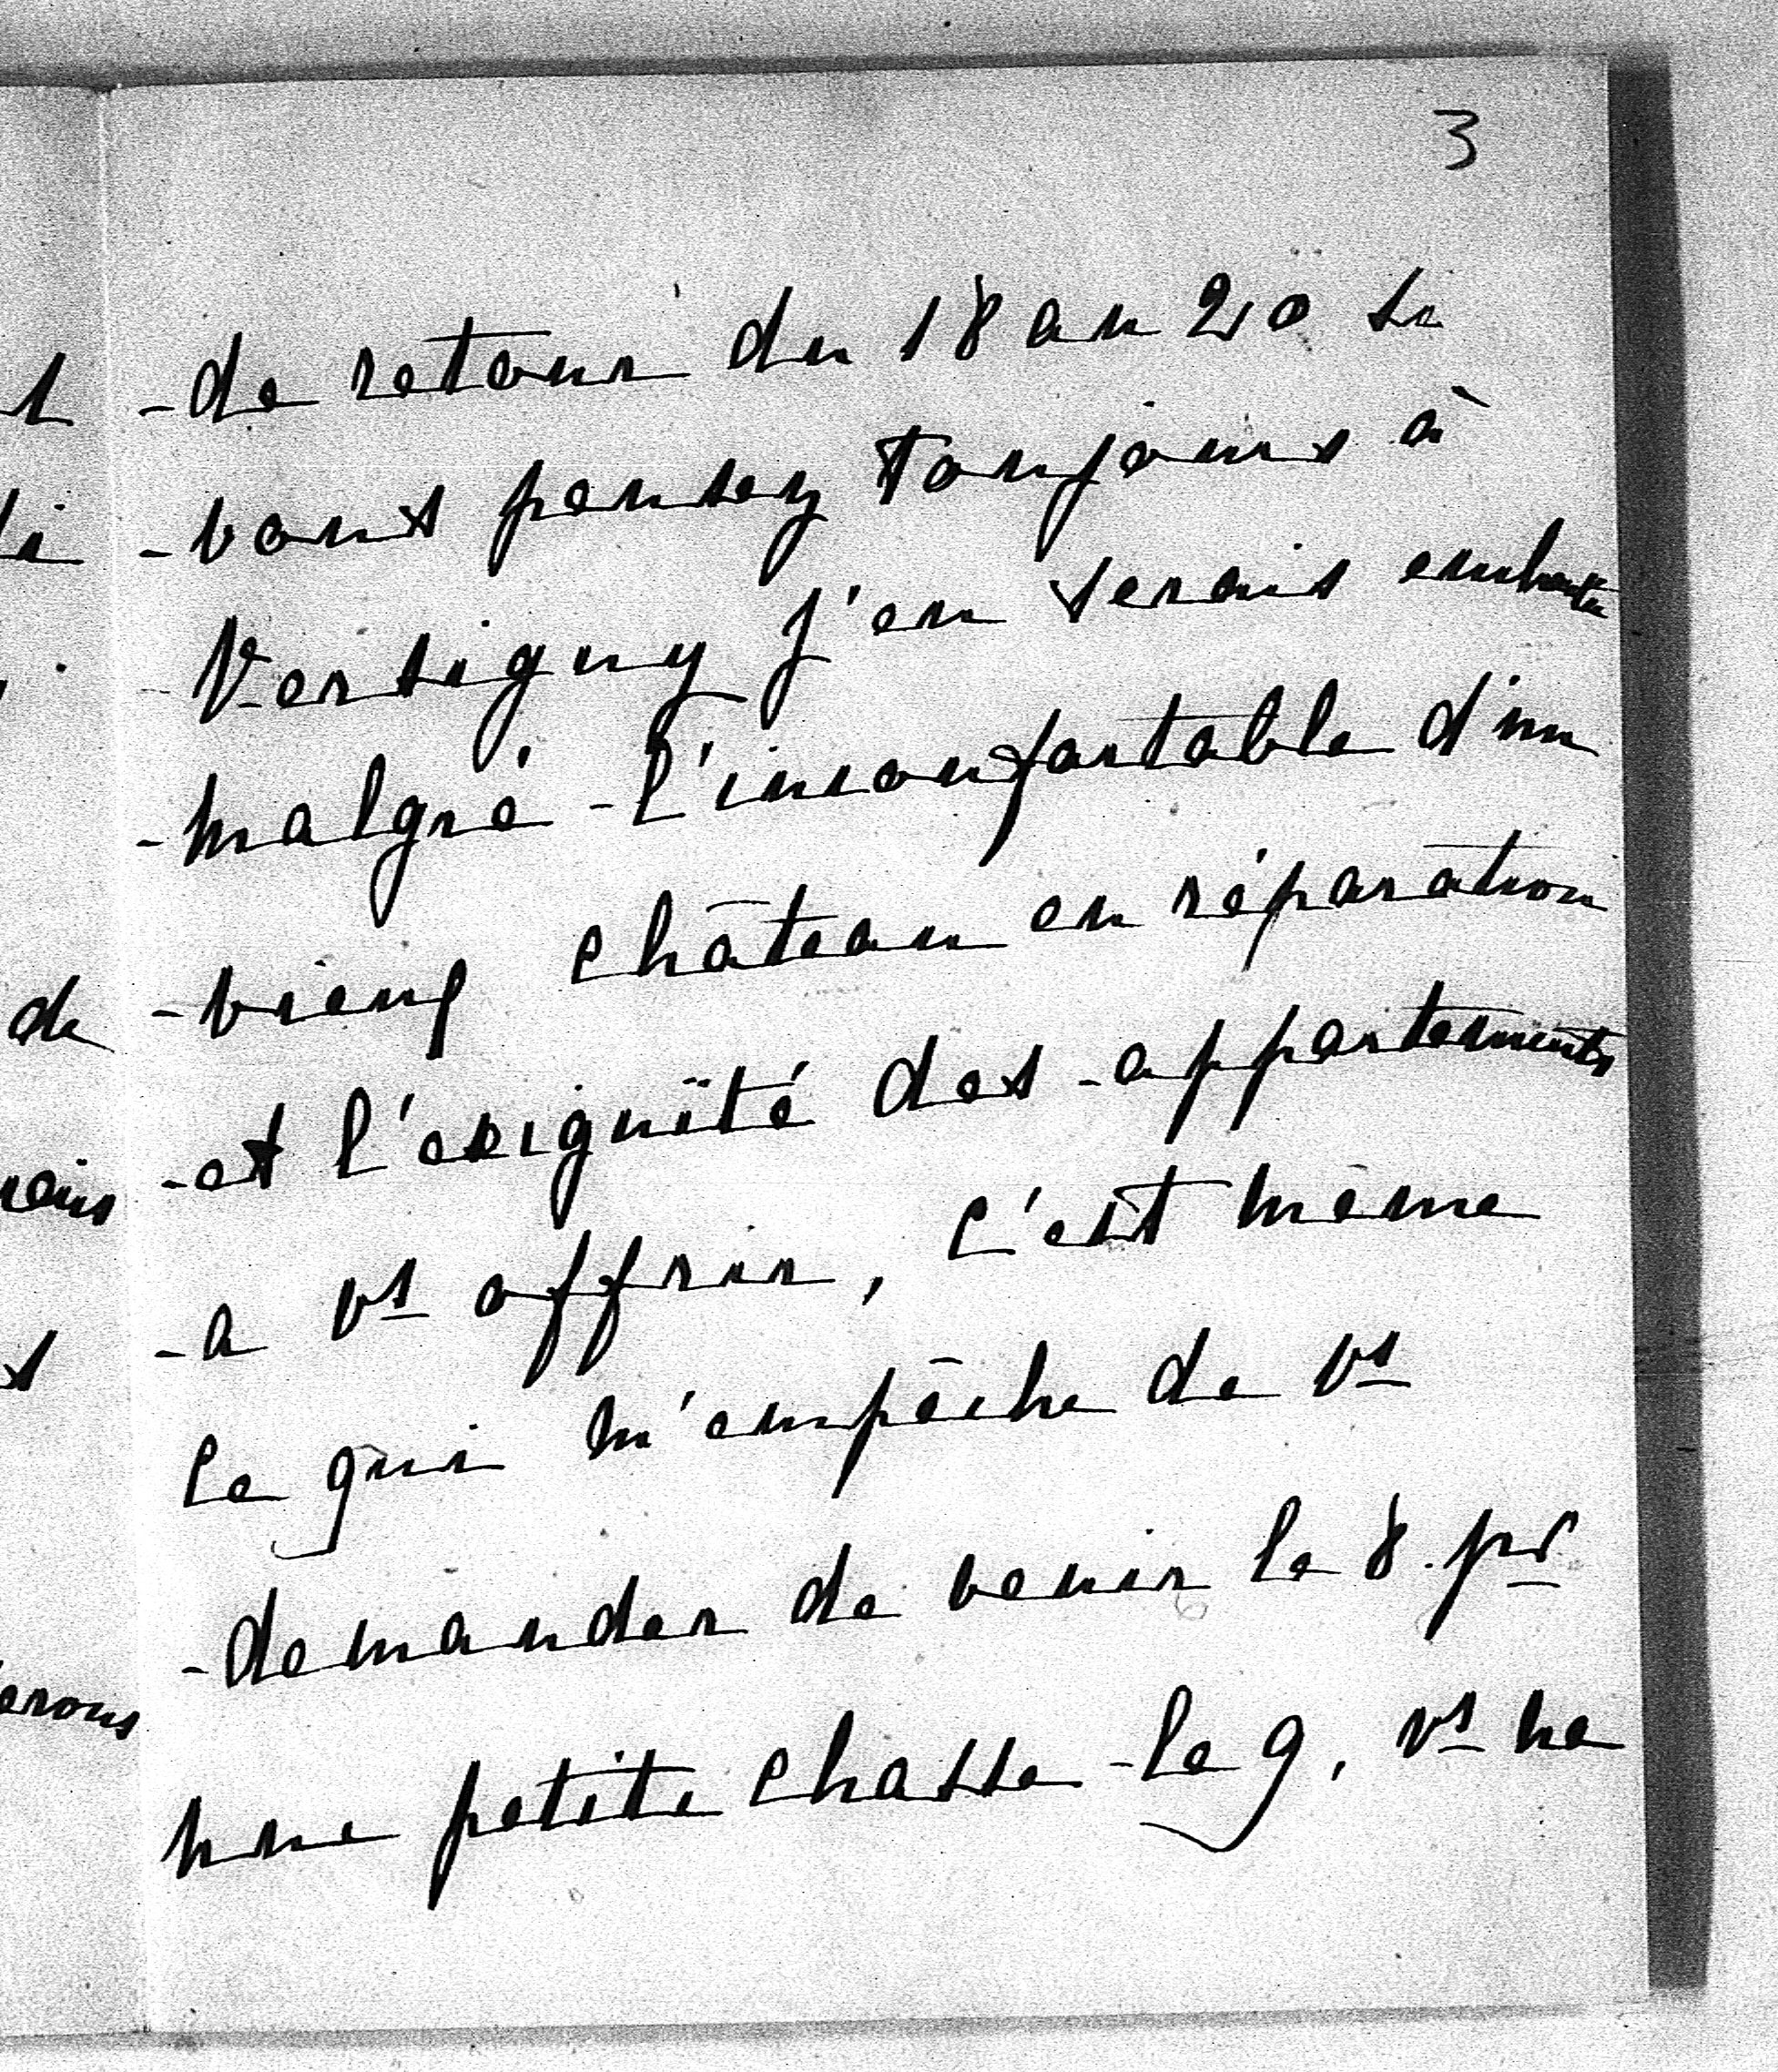 3
de retour du 18 au 20 si
vous pensez toujours à
Versigny j'en serais enchantée
malgré l'inconfortable d'un
vieux château en réparation
et l'exiguïté des appartements
a vs offrir, c'est même
ce qui m'empêche de vs
demander de venir le 8 pr
une petite chasse le 9, vs ne